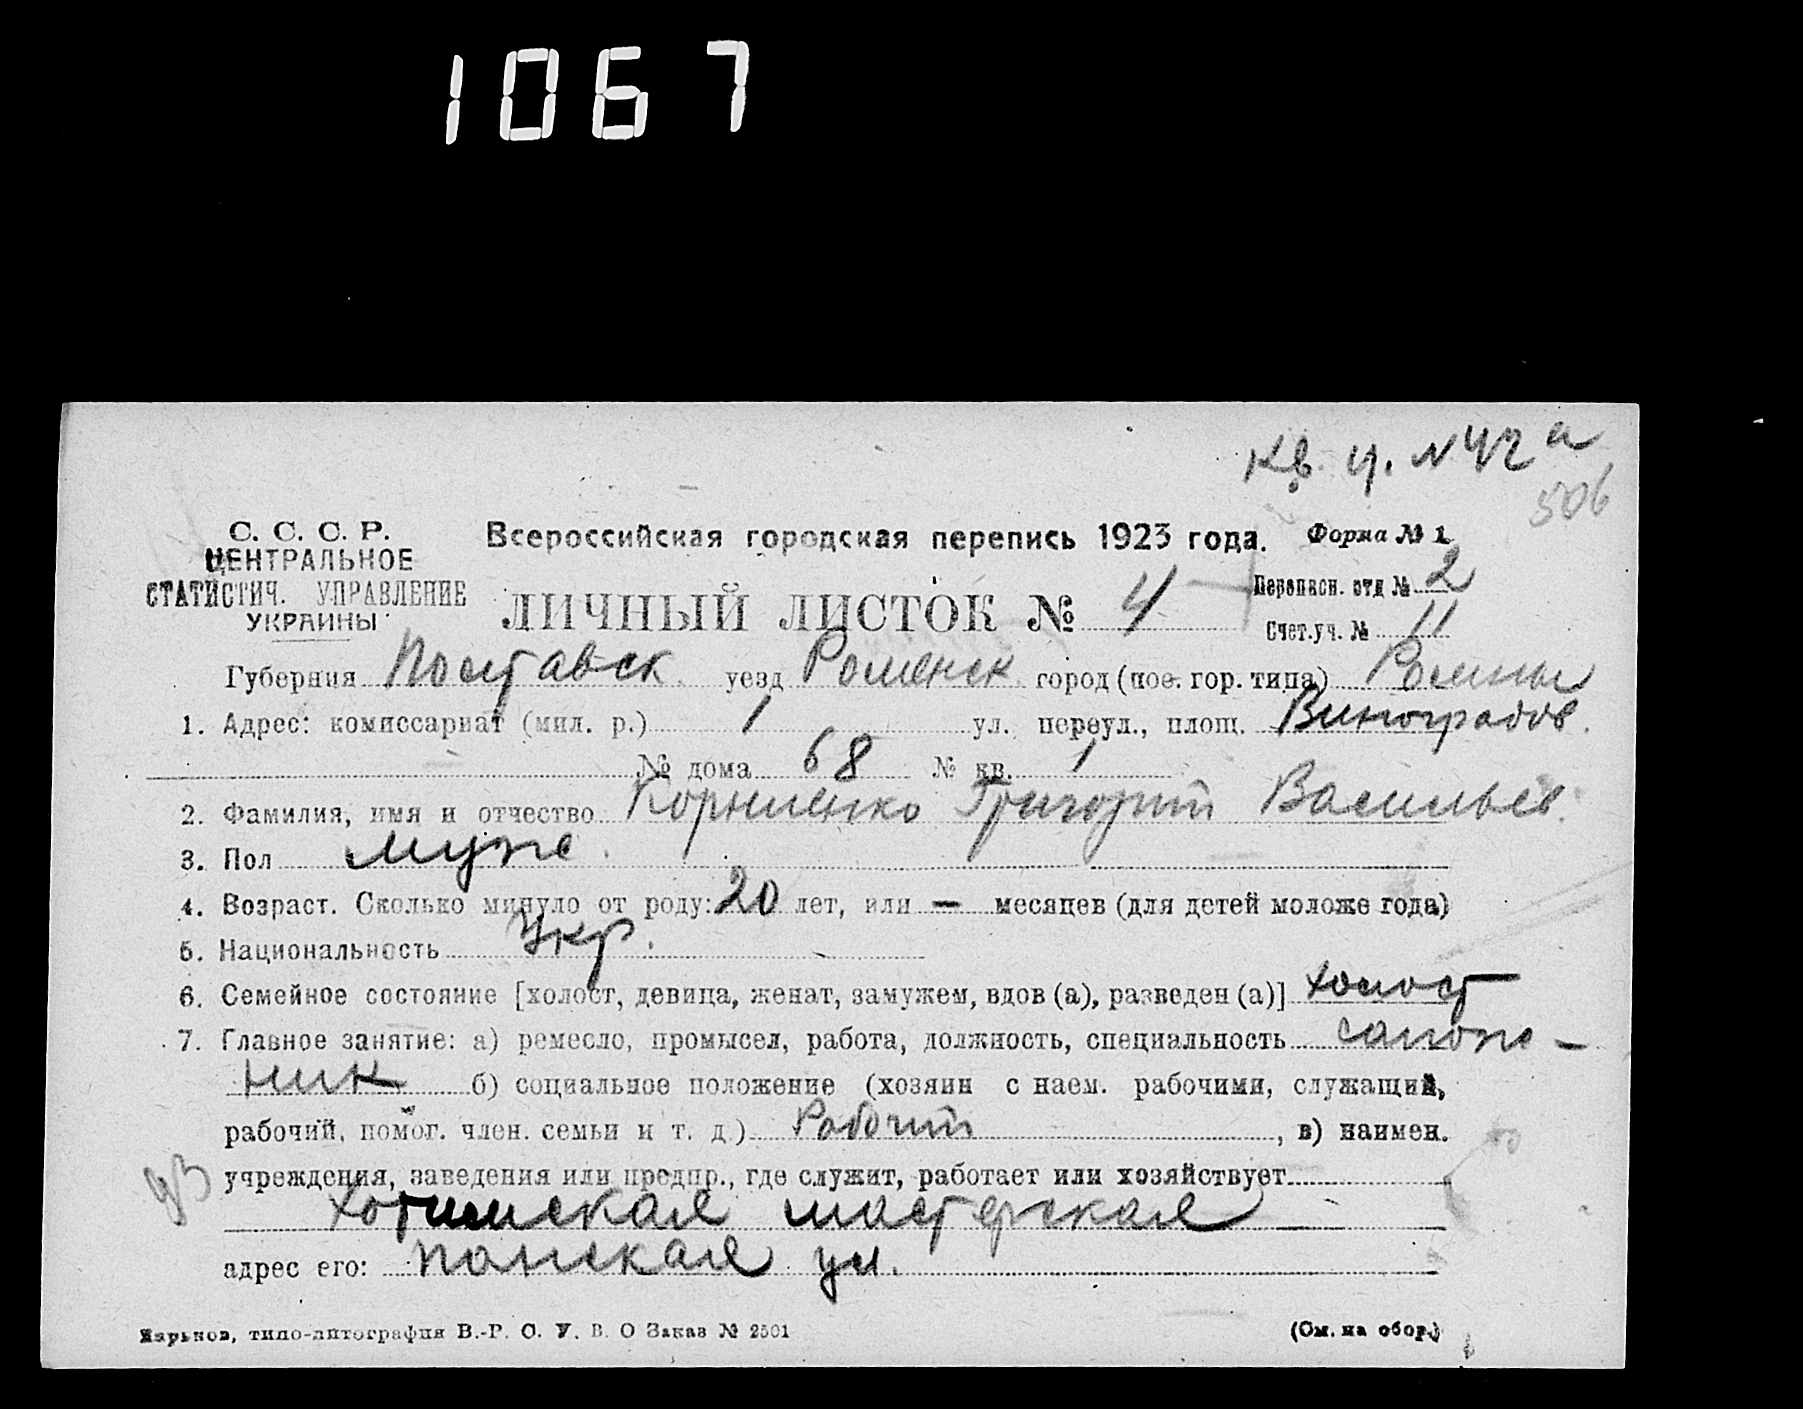 1067
Кв. у. № 42 а
506
С. С. С. Р.
ЦЕНТРАЛЬНОЕ
СТАТИСТИЧ. УПРАВЛЕНИЕ
УКРАИНЫ
Всероссийская городская перепись 1923 года. Форма № 1
ЛИЧНЫЙ ЛИСТОК № 4
Переписн. отд № 2
Счет. уч. № 11
Губерния Полтавск уезд Роменск город (пос. гор. типа) Ромны
1. Адрес: комиссариат (мил. р.) 1 ул. переул., площ. Виноградов.
№ дома 68 № кв. 1
2. Фамилия, имя и отчество Корниенко Григорий Васильев.
3. Пол муже.
4. Возраст. Сколько минуло от роду: 20 лет, или — месяцев (для детей моложе года)
5. Национальность Укр.
6. Семейное состояние [холост, девица, женат, замужем, вдов (а), разведен (а)] холост
7. Главное занятие: а) ремесло, промысел, работа, должность, специальность сапож-
ник б) социальное положение (хозяин с наем. рабочими, служащий,
рабочий, помог. член. семьи и т. д.) Рабочий, в) наимен.
учреждения, заведения или предпр., где служит, работает или хозяйствует
мастерская
адрес его: панская ул.
Харьков, типо-литография В.-Р. С. У. В. О Заказ № 2501
(См. на обор.)